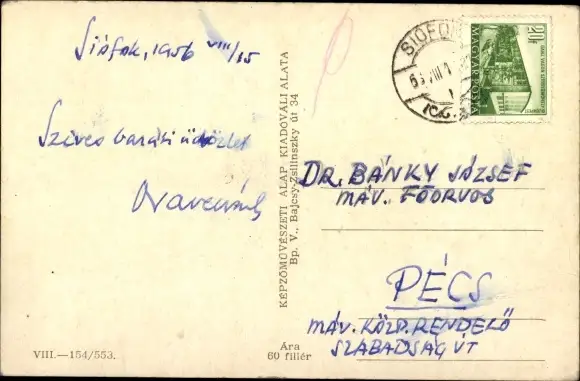 Siófok, 1956 VIII/15
Szives baráti üdvözlet
KÉPZŐMŰVÉSZETI ALAP KIADÓVÁLLALATA
Bp. V., Bajcsy-Zsilinszky út 34
SIÓFOK
20f
MAGYAR POSTA
DR. BÁNKY JÓZSEF
MÁV. FŐORVOS
PÉCS
MÁV. KÖZP. RENDELŐ
SZABADSÁG ÚT
VIII.—154/553.
Ára
60 fillér